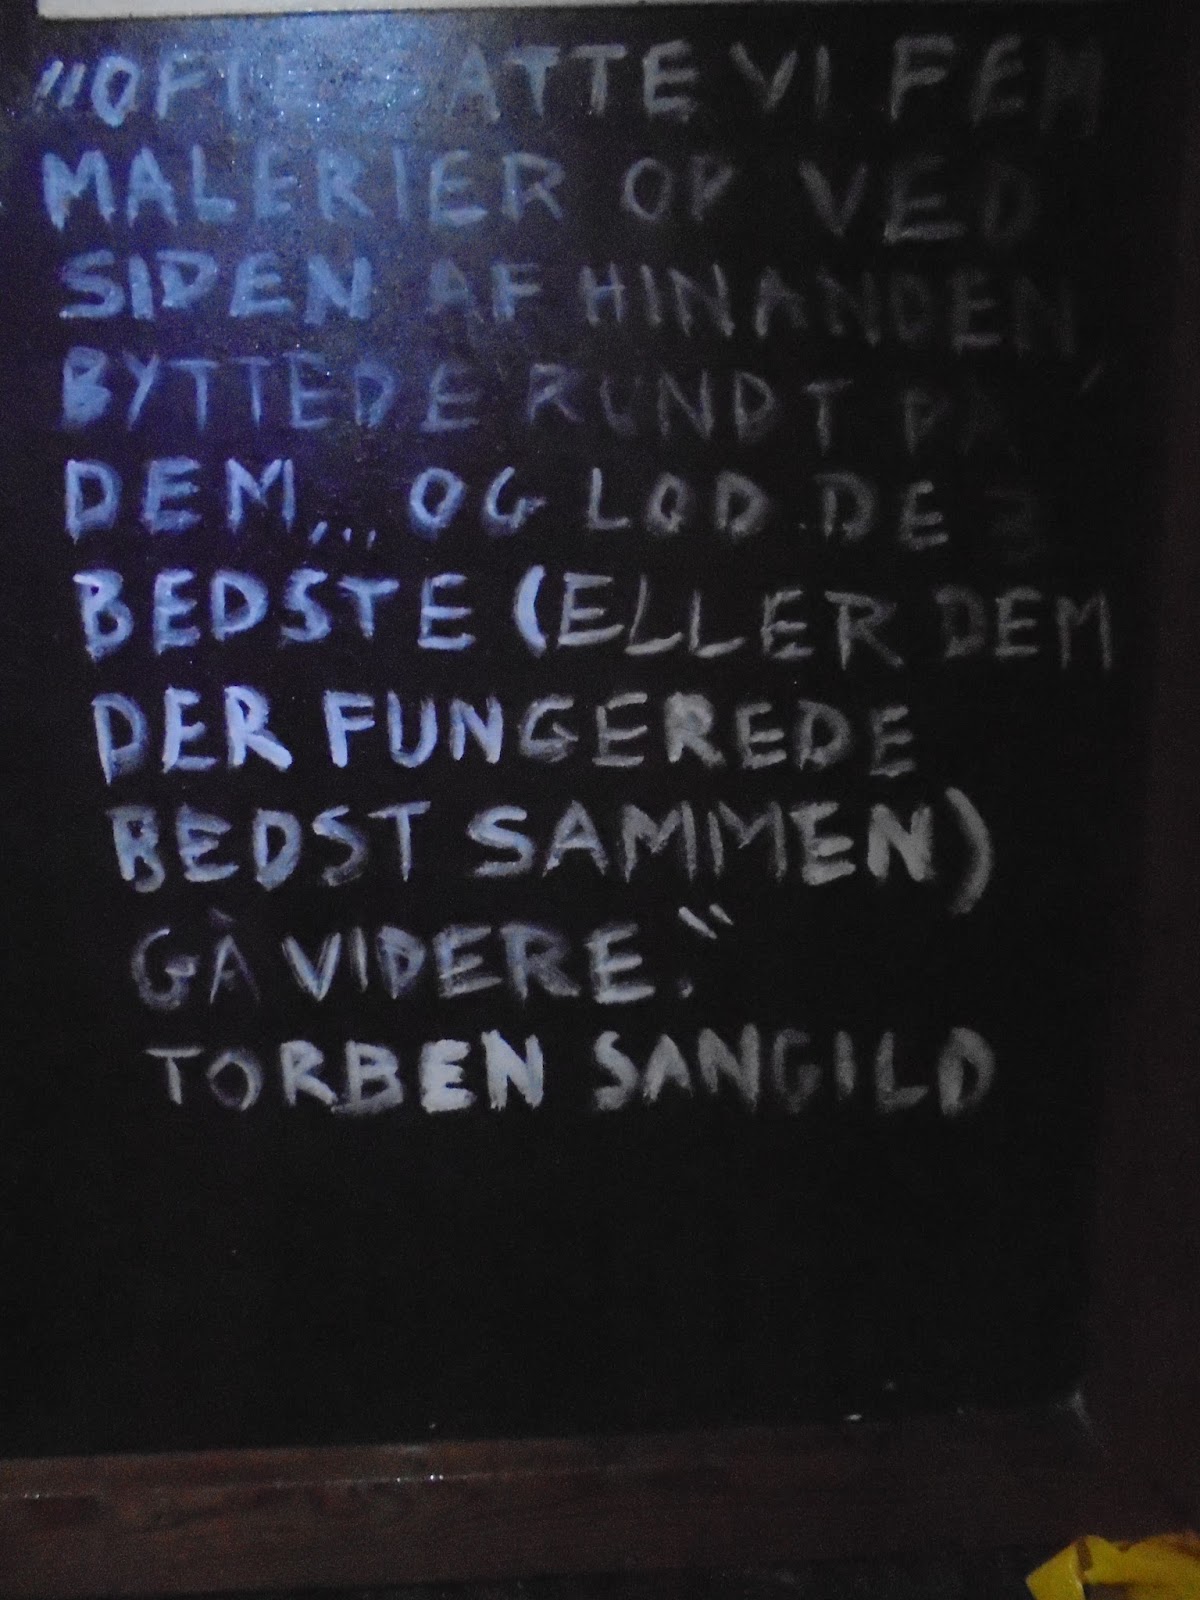 "OFTE SATTE VI FEM
MALERIER OP VED
SIDEN AF HINANDEN,
BYTTEDE RUNDT PÅ
DEM,.. OG LOD DE 3
BEDSTE (ELLER DEM
DER FUNGEREDE
BEDST SAMMEN)
GÅ VIDERE."
TORBEN SANGILD